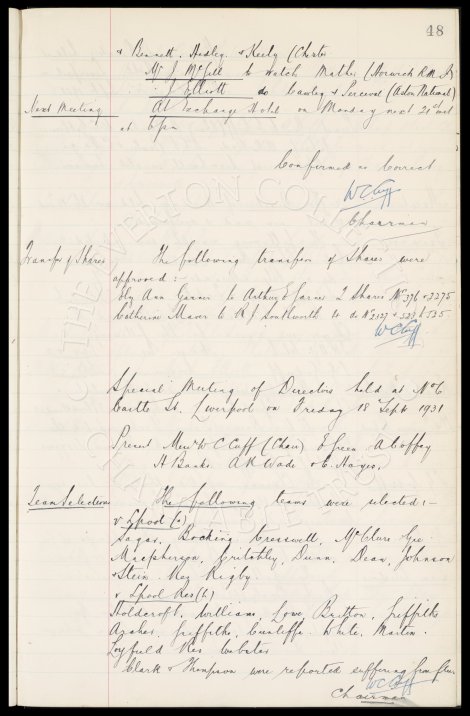 48
& Bennett, Hedley, & Keely (Chester
Mr J McGill to watch Mather (Horwich R.M.I)
" J Elliott do Cawley & Perceval (Aston National)
Next Meeting At Exchange Hotel on Monday next 21st inst
at 6 pm
Confirmed as Correct
WCCuff
Chairman
Transfer of Shares The following transfers of Shares were
approved:
Ely Ann Garner to Arthur E Garner 2 Shares No 376 & 3275
Catherine Maver to R J Southworth 4 do No 5127 & 533 to 535.
WCCuff
Special Meeting of Directors held at No 6
Castle St, Liverpool on Friday 18 Sept 1931
Present Messrs W C Cuff (Chair) E Green A Coffey
H Banks A R Wade & E. Hayes,
Team Selections The following teams were selected:-
v Lpool (a)
Sagar, Bocking Cresswell, McClure Gee
Macpherson, Critchley, Dunn, Dean, Johnson
& Stein. Res Rigby.
v Lpool Res (h)
Holdcroft, Williams, Lowe, Britton, Griffiths
Griffiths, Cunliffe. White, Martin.
Res Webster
Clark & Thompson were reported suffering from flu
WCCuff
Chairman
THE EVERTON COLLECTION
CHARITABLE TRUST